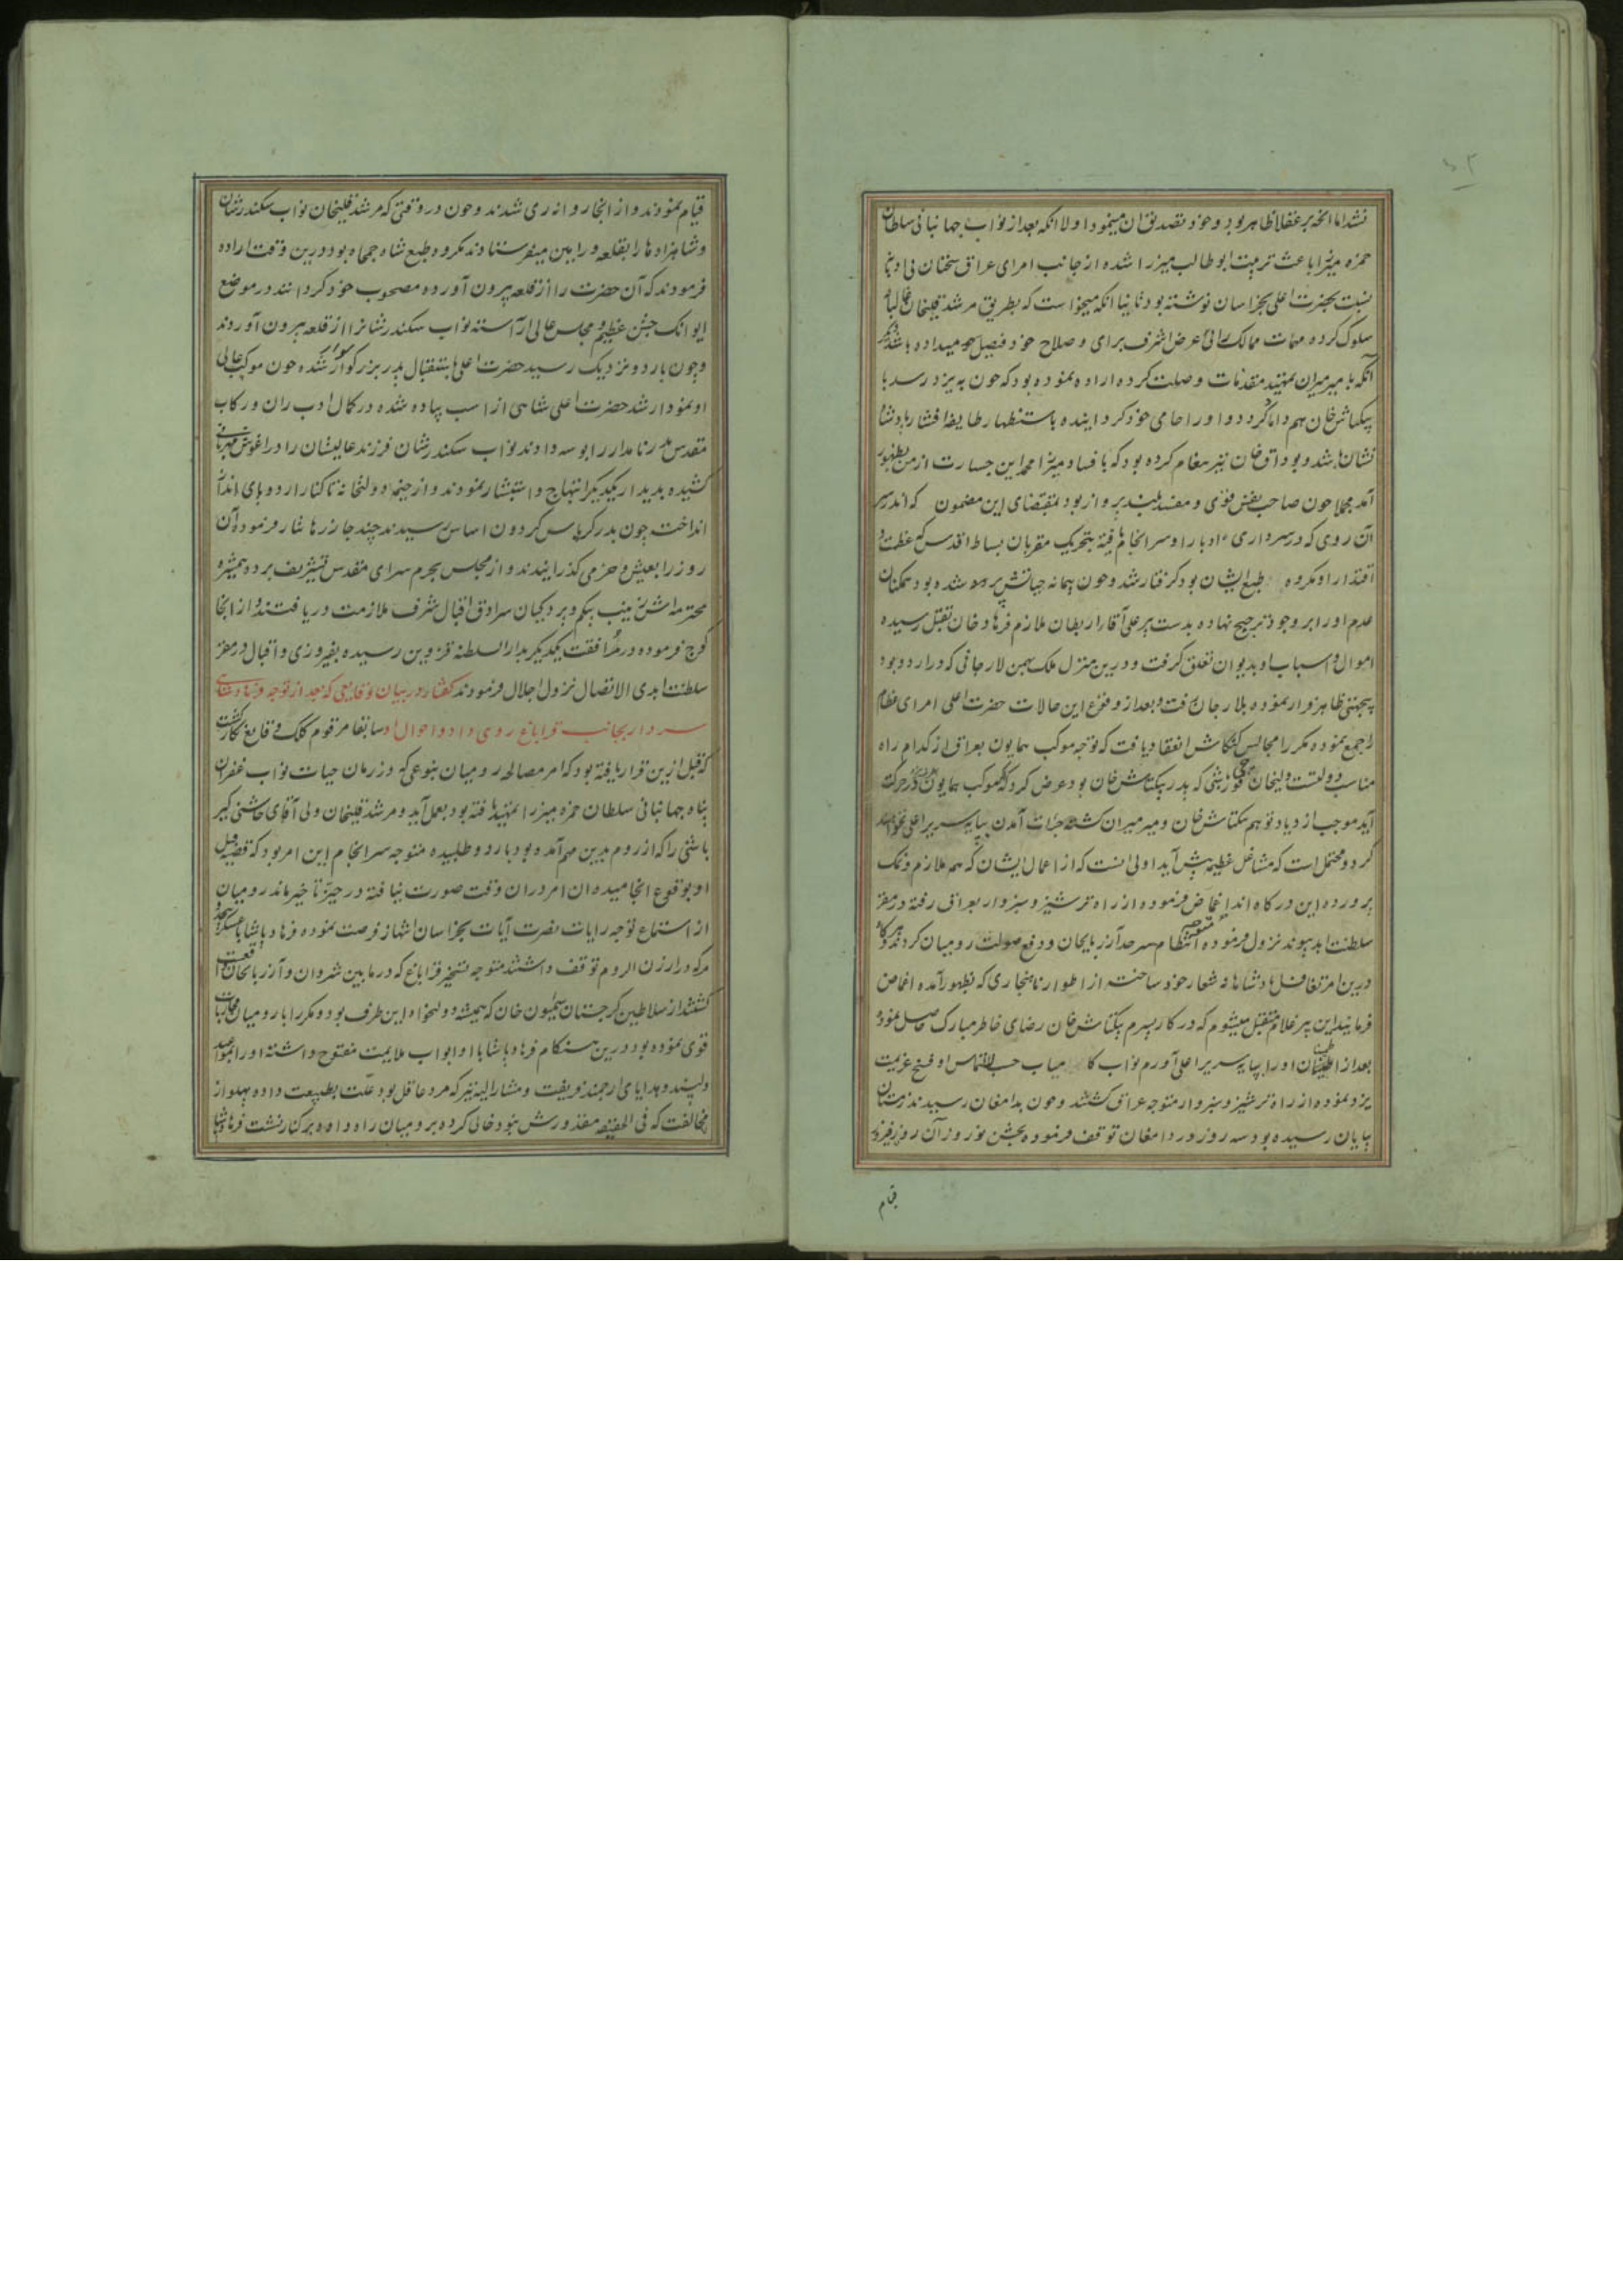 نشد اما انچه بر عقلا ظاهر بود و خود تصدیق ان مینمود اولا انکه بعد از نواب جهانبانی سلطان
حمزه میرزا باعث تربیت ابوطالب میرزا شده از جانب امرای عراق سخنان بی ادبانه
نسبت بحضرت اعلی بخراسان نوشته بود ثانیا انکه میخواست که بطریق مرشد قلیخان غالبانه
سلوک کرده مهمات ممالک را بی عرض اشرف برای و صلاح خود فیصل میداده باشد دیکر
آنکه با میرمیران تمهید مقدمات وصلت کرده اراده نموده بود که چون به یزد رسد با
بیکتاش خان هم داماد کردد و او را حامی خود کردانیده باستظهار طایفه افشار پادشاه
نشان باشد و بوداق خان نیز پیغام کرده بود که بافساد میرزا محمد این جسارت از من بظهور
آمد مجملا چون صاحب نفس قوی و مفسد بلند پرواز بود بمقتضای این مضمون که اندر سر
آن روی که در سر داری ادبار او سرانجام یافته بتحریک مقربان بساط اقدس که عظمت و
اقتدار او مکروه طبع ایشان بود کرفتار شد و چون پیمانه حیاتش پر شده بود همکنان
عدم او را بر وجود ترجیح نهاده بدست پر علی آقا ار بطان ملازم فرهاد خان بقتل رسیده
اموال و اسباب او بدیوان تعلق کرفت و درین منزل ملک بهمن لارجانی که در اردو بود
بیجهتی ظاهر فرار نموده بلارجان رفت و بعد از وقوع این حالات حضرت اعلی امرای عظام
را جمع نموده مکررا مجالس کنکاش انعقاد یافت که توجه موکب همایون بعراق از کدام راه
مناسب دولتست ولیخان قورچی باشی که پدر بیکتاش خان بود عرض کرد که موکب همایون در حرکت
آید موجب ازدیاد توهم بیکتاش خان و میرمیران کشته جرات آمدن بپایه سریر اعلی نخواهند
کرد و محتمل است که مشاغل عظیمه پیش آید اولی انست که از اعمال ایشان که هم ملازم و نمک
پرورده این درکاه اند اغماض فرموده از راه ترشیز و سبزوار بعراق رفته در مقر
سلطنت ابد پیوند نزول فرموده متوجه انتظام سرحد آذربایجان و دفع صولت رومیان کردند و هر کاه
درین امر تغافل پادشاهانه شعار خود ساخته از اطوار ناهنجاری که بظهور آمده اغماض
فرمایند این پیر غلام متقبل میشوم که در کار پسرم بیکتاش خان رضای خاطر مبارک حاصل نموده
بعد از اطمینان او را بپایه سریر اعلی آورم نواب کامیاب حسب الالتماس او فسخ عزیمت
یزد نموده از راه ترشیز و سبزوار متوجه عراق کشتند و چون بدامغان رسیدند زمستان
بپایان رسیده بود سه روز در دامغان توقف فرموده بجشن نوروز آن روز فیروز
قیام
قیام نمودند و از انجا روانه ری شدند و چون در وقتی که مرشد قلیخان نواب سکندرشان
و شاهزاده ها را بقلعه ورامین میفرستادند مکروه طبع شاه جمجاه بود درین وقت اراده
فرمودند که آن حضرت را از قلعه بیرون آورده مصحوب خود کردانند در موضع
ایوانک جشن عظیم و مجلس عالی آراسته نواب سکندرشانرا از قلعه بیرون آوردند
و چون باردو نزدیک رسید حضرت اعلی باستقبال پدر بزرکوار سوار شده چون موکب عالی
او نمودار شد حضرت اعلی شاهی از اسب پیاده شده در کمال ادب ران و رکاب
مقدس پدر نامدار را بوسه دادند نواب سکندرشان فرزند عالیشان را در اغوش مهربانی
کشیده بدیدار یکدیکر ابتهاج و استبشار نمودند و از خیمه دولتخانه تا کنار اردو پای انداز
انداخته چون بدر کریاس کردون اساس رسیدند چند جا زرها نثار فرمودند آن
روز را بعیش و خرمی کذرانیدند و از مجلس بحرم سرای مقدس تشریف برده همشیره
محترمه اش زینب بیکم و پردکیان سرادق اقبال شرف ملازمت دریافتند و از انجا
کوچ فرموده در مرافقت یکدیکر بدارالسلطنه قزوین رسیده بفیروزی و اقبال در مقر
سلطنت ابدی الاتصال نزول اجلال فرمودند کفتار در بیان وقایعی که بعد از توجه فرهاد پاشای
سردار بجانب قراباغ روی داد و احوال او سابقا مرقوم کلک وقایع نکار کشت
که قبل ازین قرار یافته بود که امر مصالحه رومیان بنوعی که در زمان حیات نواب غفران
پناه جهانبانی سلطان حمزه میرزا تمهید یافته بود بعمل آید و مرشد قلیخان ولی آقای چاشنی کیر
باشی را که از روم بدین مهم آمده بود باردو طلبیده متوجه سرانجام این امر بود که قضیه قتل
او بوقوع انجامیده ان امر در ان وقت صورت نیافته در حیز تاخیر ماند رومیان
از استماع توجه رایات نصرت آیات بخراسان انتهاز فرصت نموده فرهاد پاشا با عسکر
که در ارزن الروم توقف داشتند متوجه تسخیر قراباغ که در مابین شروان و آذربایجان واقعست
کشتند از سلاطین کرجستان سمیون خان که همیشه دولتخواه این طرف بود و مکررا با رومیان محاربات
قوی نموده بود درین هنکام فرهاد پاشا با او ابواب ملایمت مفتوح داشته او را بمواعید
دلپسند و هدایای ارجمند فریفت و مشارالیه نیز که مرد عاقل بود علت بطبیعت داده پهلو از
مخالفت که فی الحقیقه مقدورش نبود خالی کرده برومیان راه داده بر کنار نشست فرهاد پاشا